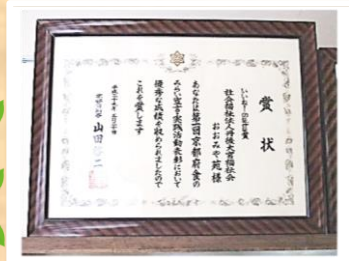 賞状
社会福祉法人丹後大宮福祉会
おおみや苑 様
あなたは第二回京都府食の
みらい宣言実践活動表彰において
優秀な成績を収められましたので
これを賞します
京都府知事 山田啓二